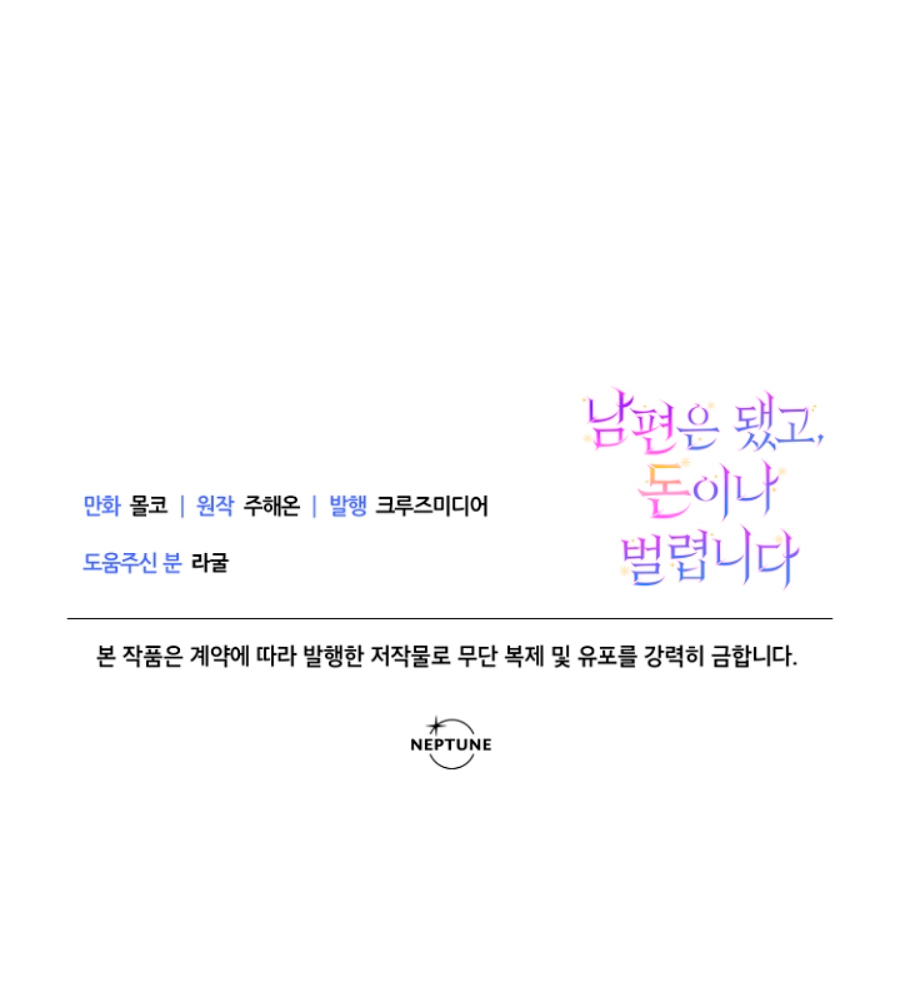 남편은 됐고,
돈이나
벌렵니다
만화 몰코 | 원작 주해온 | 발행 크루즈미디어
도움주신 분 라굴
본 작품은 계약에 따라 발행한 저작물로 무단 복제 및 유포를 강력히 금합니다.
NEPTUNE